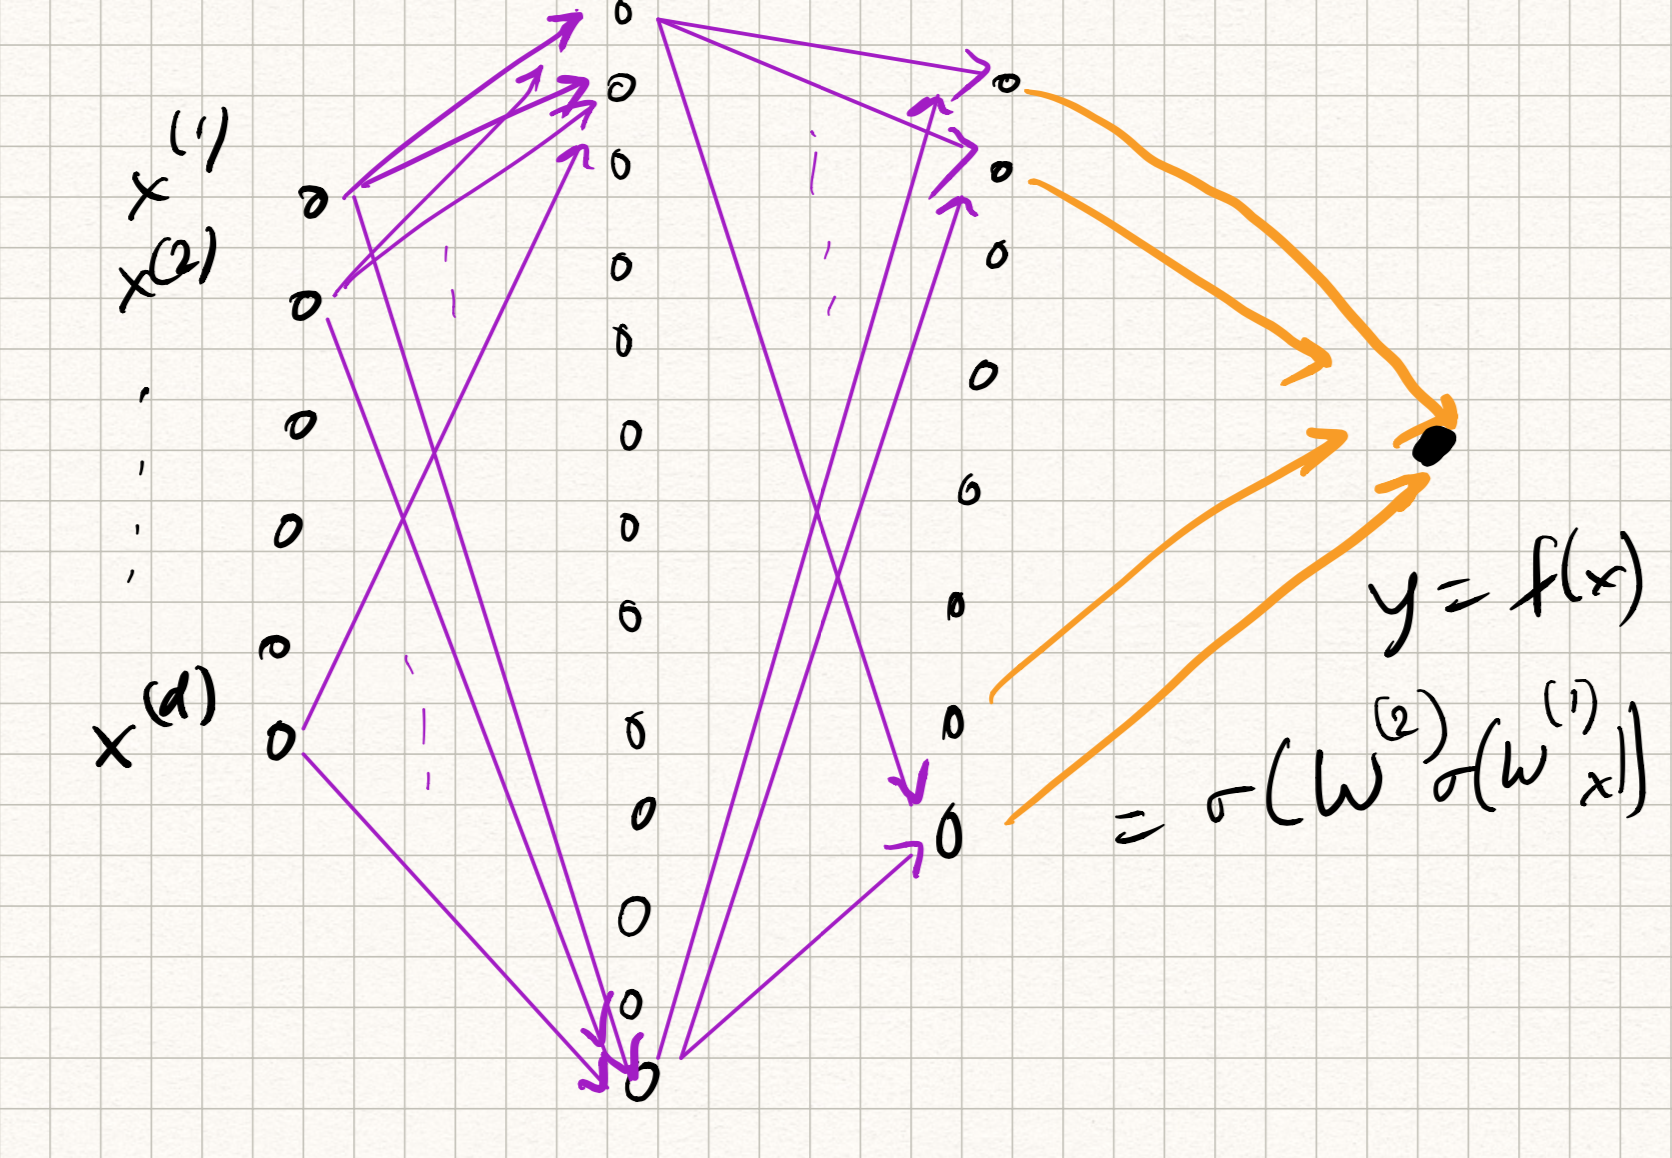 x^(1)
x^(2)
x^(d)
y = f(x)
= σ(W^(2) σ(W^(1) x))